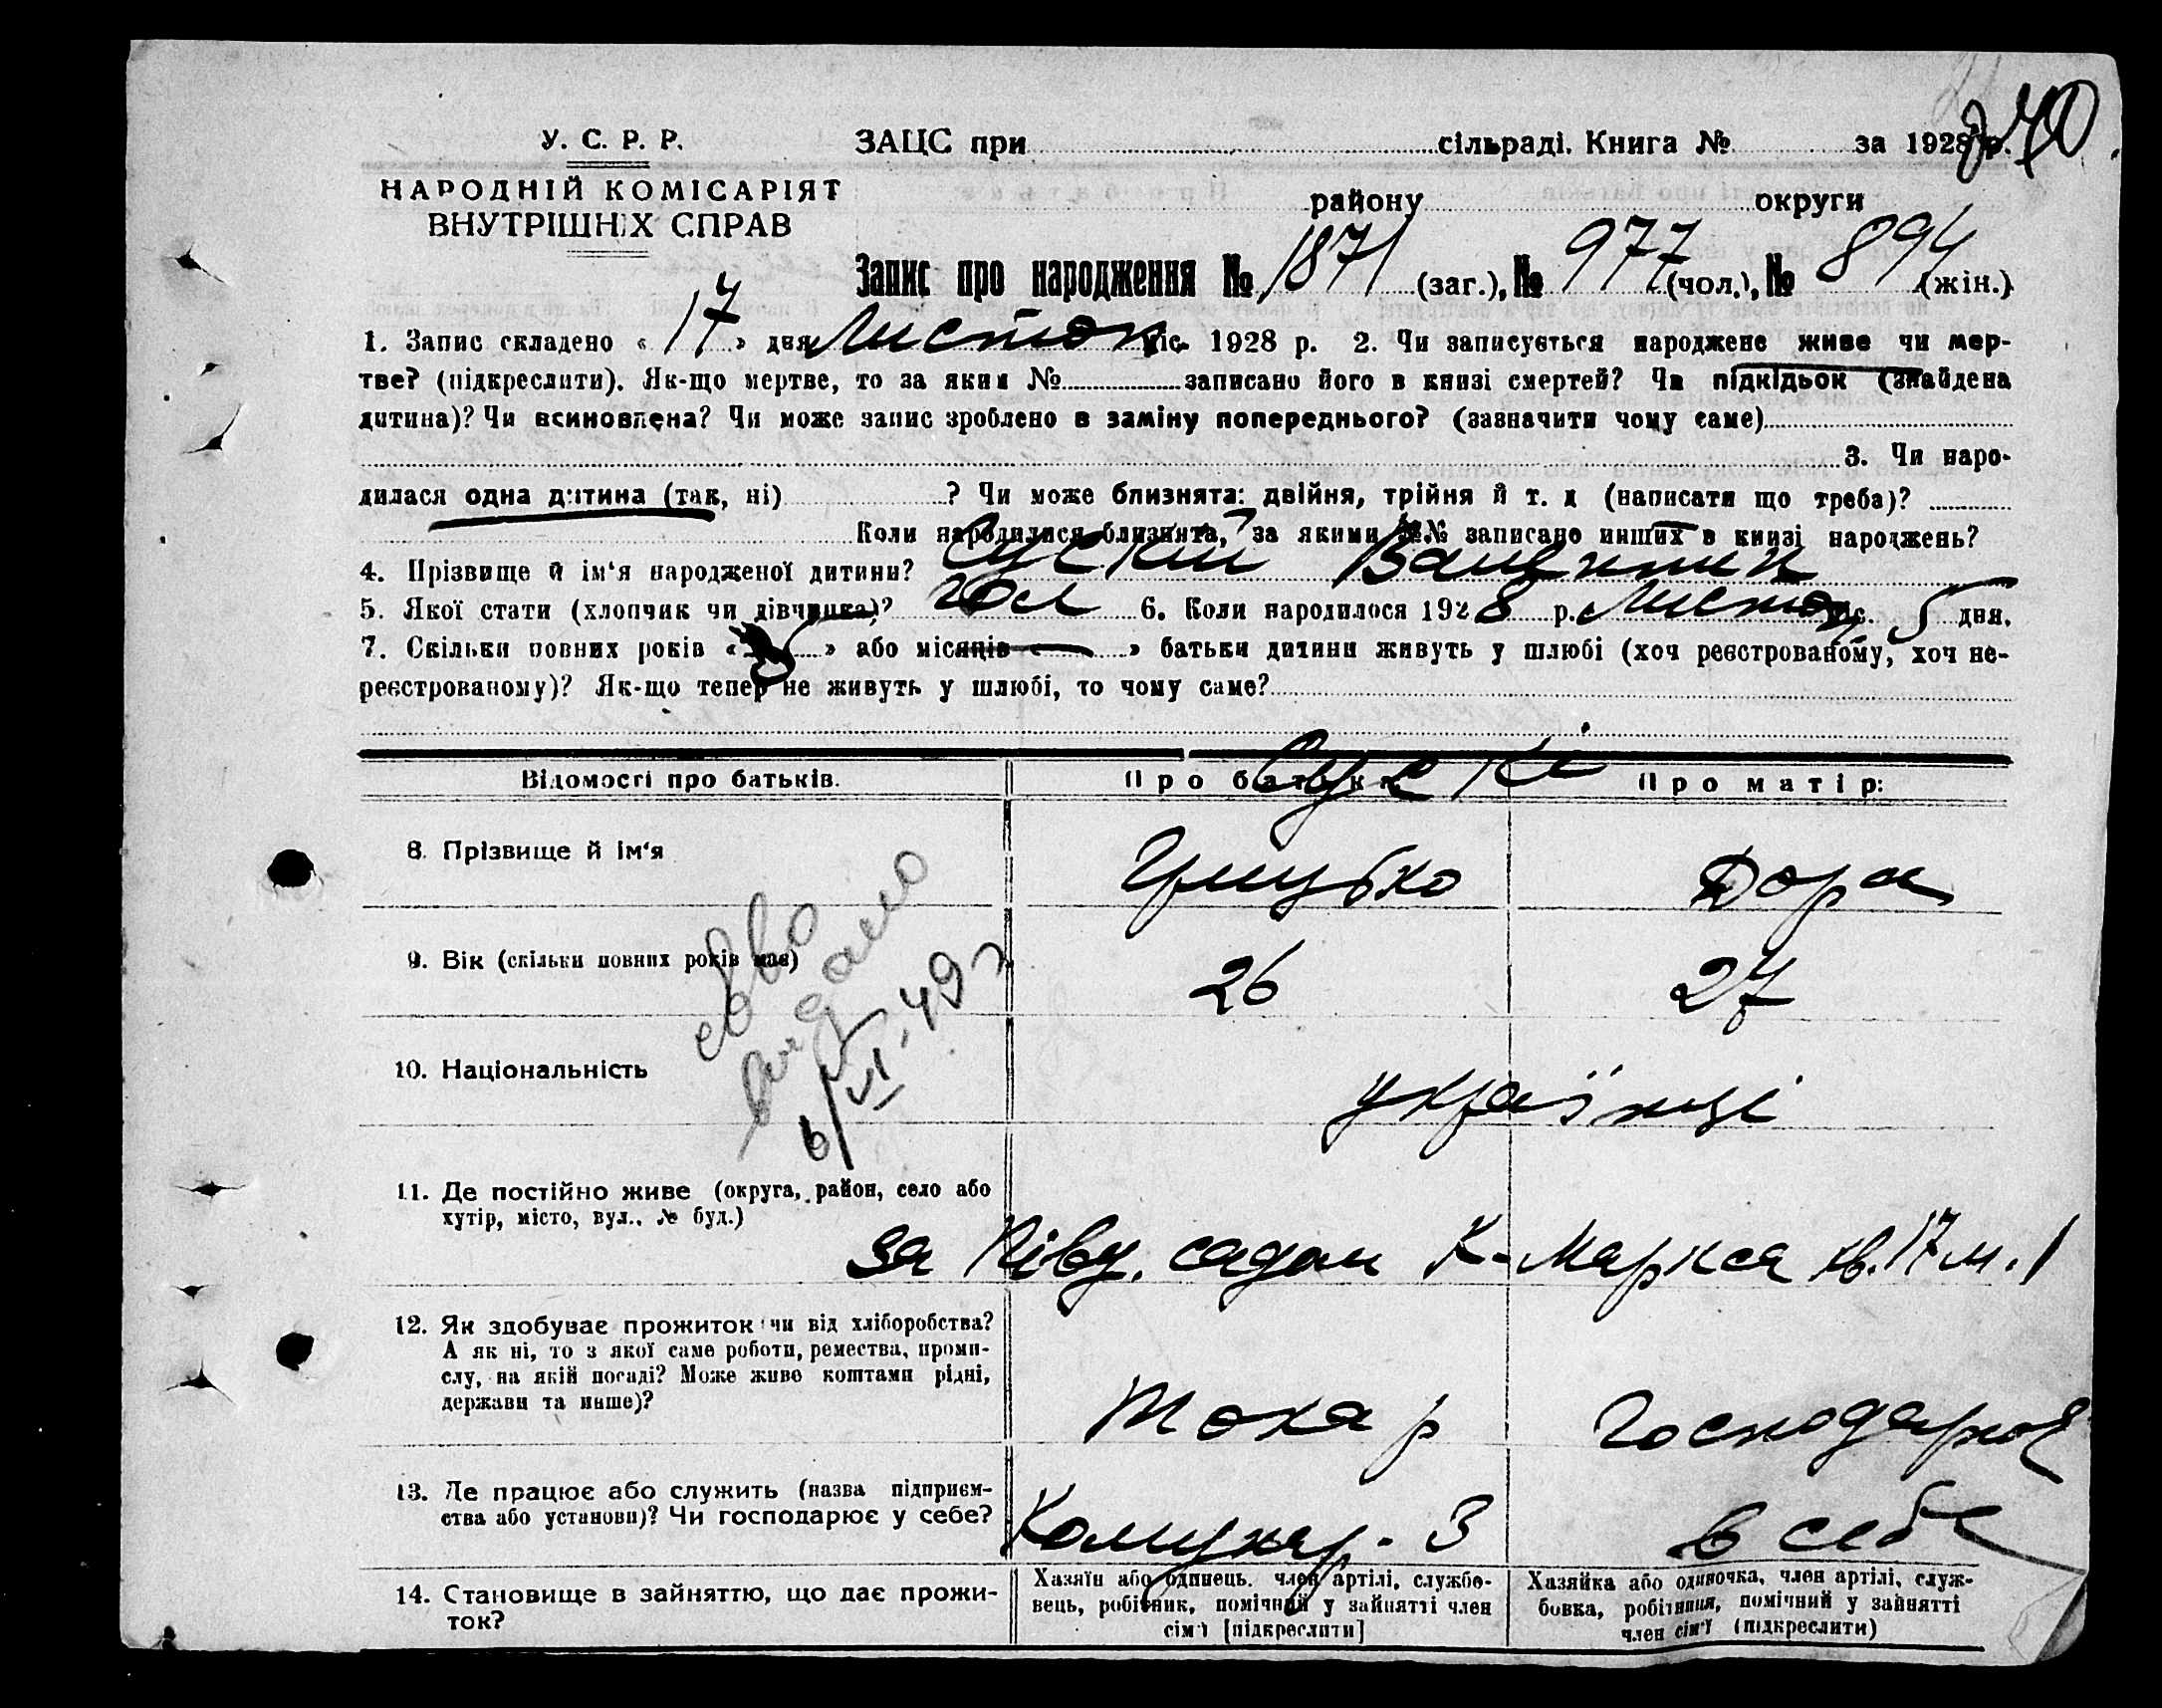 У. С. Р. Р.
НАРОДНІЙ КОМІСАРІЯТ
ВНУТРІШНІХ СПРАВ
ЗАЦС при сільраді. Книга № за 1928 р.
70
району округи
Запис про народження № 1871 (заг.), № 977 (чол.), № 894 (жін.)
1. Запис складено « 17 » дня Листоп міс. 1928 р. 2. Чи записується народжене живе чи мер-
тве? (підкреслити). Як-що мертве, то за яким № записано його в книзі смертей? Чи підкідьок (знайдена
дитина)? Чи всиновлена? Чи може запис зроблено в заміну попереднього? (зазначити чому саме)
3. Чи наро-
дилася одна дитина (так, ні) ? Чи може близнята: двійня, трійня й т. д (написати що треба)?
Коли народилися близнята, за якими №№ записано инших в книзі народжень?
4. Прізвище й ім'я народженої дитини?
5. Якої статі (хлопчик чи дівчинка)? чол 6. Коли народилося 1928 р. Листоп міс. 5 дня.
7. Скільки повних років « » або місяців « — » батьки дитини живуть у шлюбі (хоч реєстрованому, хоч не-
реєстрованому)? Як-що тепер не живуть у шлюбі, то чому саме?
Відомості про батьків. Про батька: Про матір:
8. Прізвище й ім'я Дора
9. Вік (скільки повних років має) 26 27
видано
6/VI-49
10. Національність українці
11. Де постійно живе (округа, район, село або
хутір, місто, вул., № буд.)
за Півд. садом К-Маркса кв. 17 м. 1
12. Як здобуває прожиток чи від хліборобства?
А як ні, то з якої саме роботи, ремества, проми-
слу, на якій посаді? Може живе коштами рідні,
держави та инше)?
Токар Господарює
13. Де працює або служить (назва підприєм-
ства або установи)? Чи господарює у себе?
Комунар. 3 в себе
14. Становище в зайняттю, що дає прожи-
ток?
Хазяїн або одинець, член артілі, службо-
вець, робітник, помічний у зайнятті член
сім'ї [підкреслити]
Хазяйка або одиночка, член артілі, служ-
бовка, робітниця, помічний у зайнятті
член сім'ї (підкреслити)